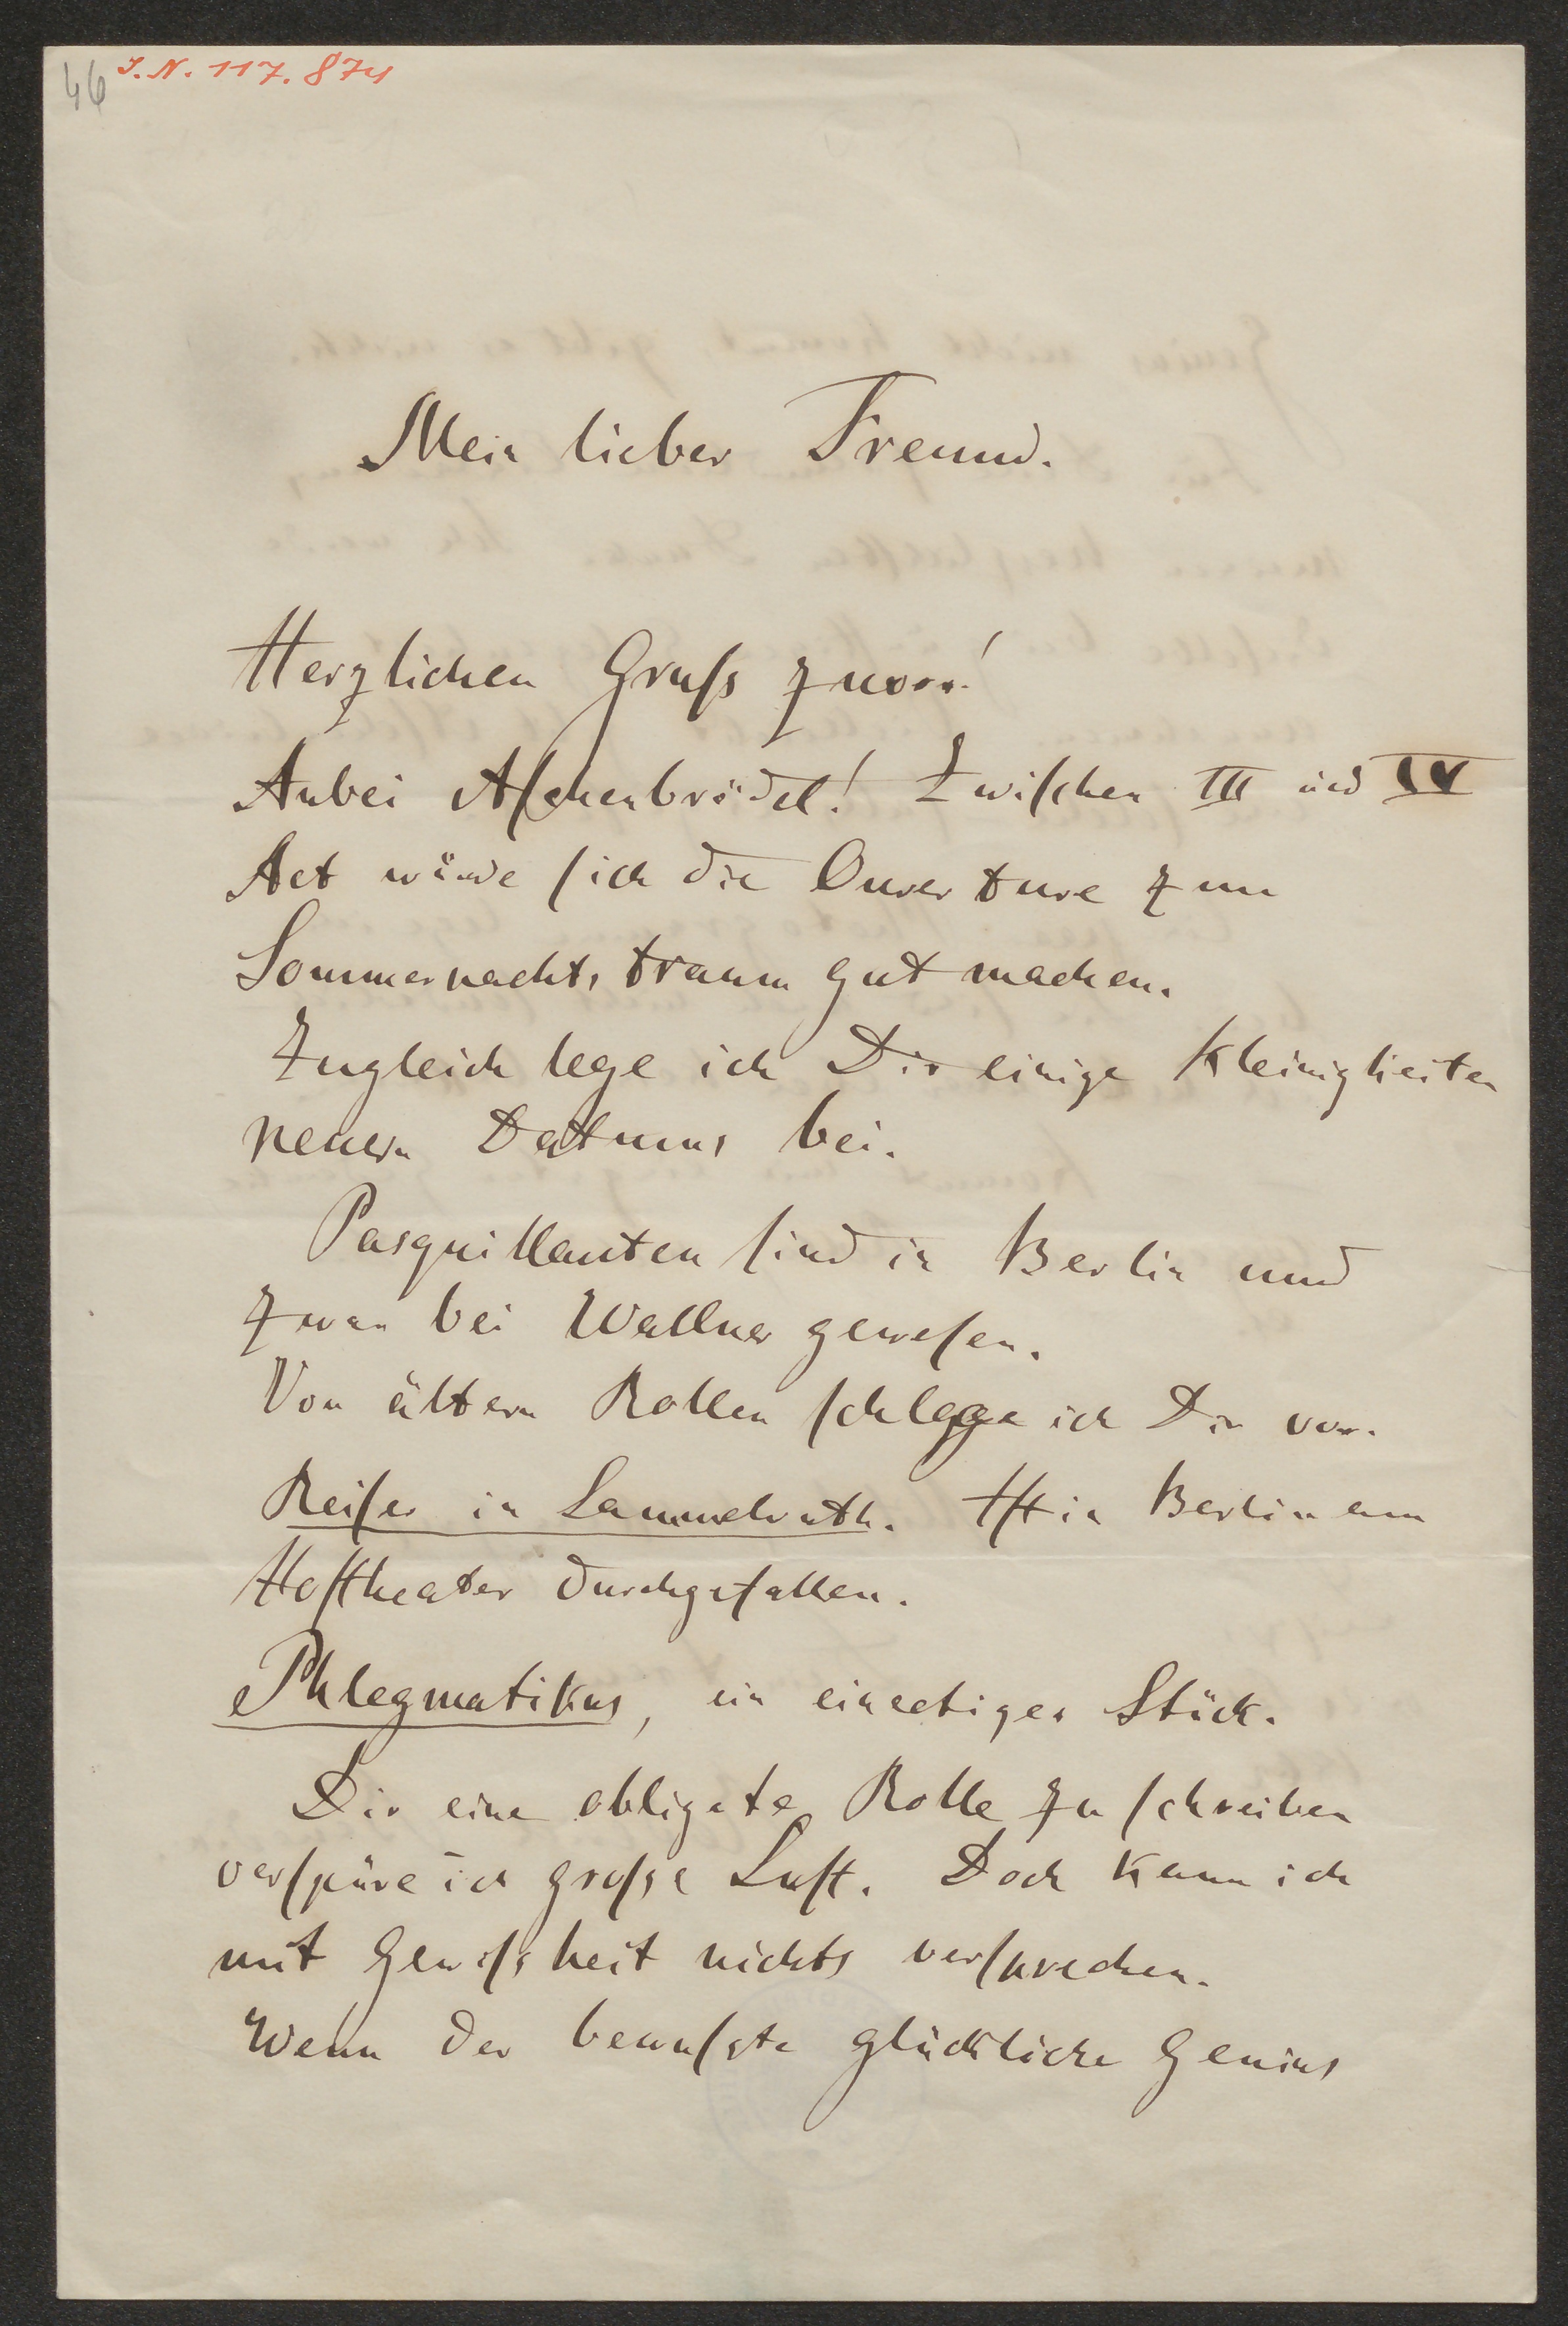 46 I.N. 117.874
Mein lieber Freund.
Herzlichen Gruſs zuvor!
Anbei Aſchenbrödel! Zwiſchen III und IV
Act würde ſich die Ouverture zum
Sommernachtstraum gut machen.
Zugleich lege ich Dir einige Kleinigkeiten
neuern Datums bei.
Pasquillanten ſind in Berlin und
zwar bei Wallner geweſen.
Von ältern Rollen ſchlage ich Dir vor.
Reiſer in Lammelruth. Iſt in Berlin am
Hoftheater durchgefallen.
Phlegmatikus, ein einactiges Stück.
Dir eine obligate Rolle zu ſchreiben
verſpüre ich groſse Luſt. Doch kann ich
mit Gewiſsheit nichts verſprechen.
Wenn der bewuſste glückliche Genius